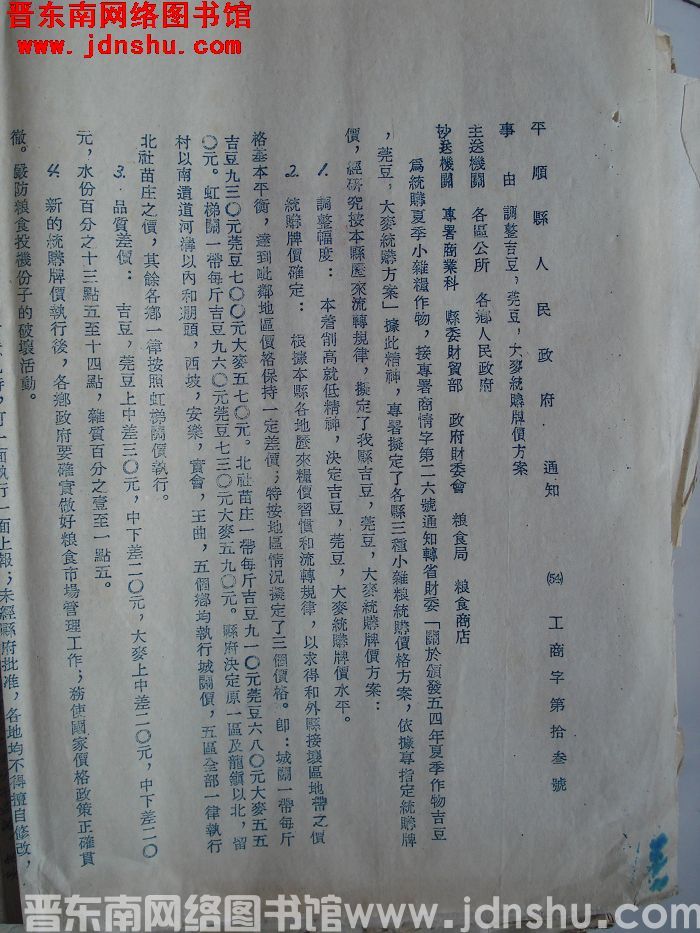 晋东南网络图书馆
www.jdnshu.com
平順縣人民政府·通知 (54)工商字第拾叁號
事由 調整吉豆,莞豆,大麥統購牌價方案
主送機關 各區公所 各鄉人民政府
抄送機關 專署商業科 縣委財貿部 政府財委會 粮食局 粮食商店
爲統購夏季小雜糧作物,接專署商情字第二六號通知轉省財委「關於頒發五四年夏季作物吉豆
,莞豆,大麥統購方案」據此精神,專署擬定了各縣三種小雜粮統購價格方案,依據專指定統購牌
價,經研究按本縣歷來流轉規律,擬定了我縣吉豆,莞豆,大麥統購牌價方案:
1. 調整幅度: 本着削高就低精神,決定吉豆,莞豆,大麥統購牌價水平。
2. 統購牌價確定: 根據本縣各地歷來糧價習慣和流轉規律,以求得和外縣接壤區地帶之價
格基本平衡,達到毗鄰地區價格保持一定差價;特按地區情況擬定了三個價格。卽:城關一帶每斤
吉豆九三〇元莞豆七〇〇元大麥五七〇元。北社苗庄一帶每斤吉豆九一〇元莞豆六八〇元大麥五五
〇元。虹梯關一帶每斤吉豆九六〇元莞豆七三〇元大麥五九〇元。縣府決定原一區及龍鎭以北,留
村以南遺道河溝以內和淜頭,西坡,安樂,實會,王曲,五個鄉均執行城關價,五區全部一律執行
北社苗庄之價,其餘各鄉一律按照虹梯關價執行。
3. 品質差價: 吉豆,莞豆上中差三〇元,中下差二〇元,大麥上中差二〇元,中下差二〇
元,水份百分之十三點五至十四點,雜質百分之壹至一點五。
4. 新的統購牌價執行後,各鄉政府要確實做好粮食市場管理工作;務使國家價格政策正確貫
徹。嚴防粮食投機份子的破壞活動。
一面執行一面上報;未經縣府批准,各地均不得擅自修改,
晋东南网络图书馆 www.jdnshu.com